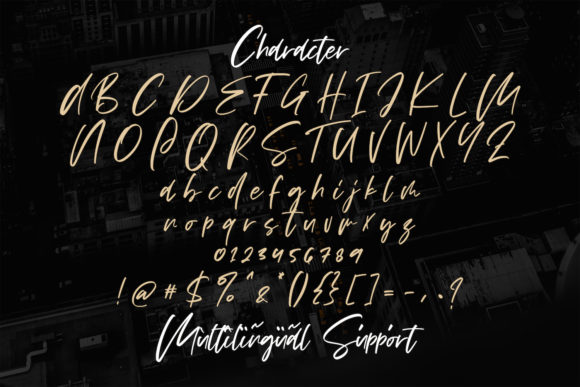 Character
A B C D E F G H I J K L M
N O P Q R S T U V W X Y Z
a b c d e f g h i j k l m
n o p q r s t u v w x y z
0 1 2 3 4 5 6 7 8 9
! @ # $ % ^ & * ( ) { } [ ] = - , . ?
Multîlïñgüãl Support